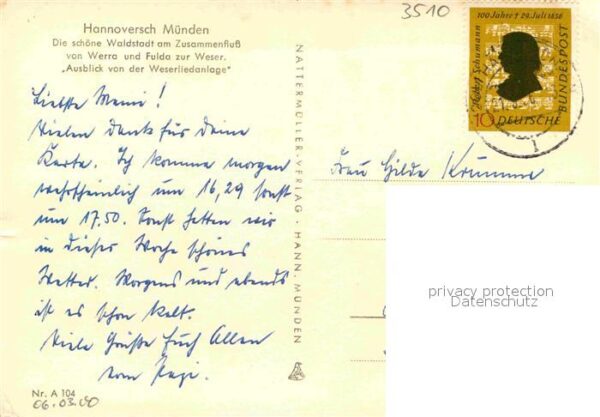 Hannoversch Münden
Die schöne Waldstadt am Zusammenfluß
von Werra und Fulda zur Weser.
„Ausblick von der Weserliedanlage"
Liebste Memi!
Vielen dank für deine
Karte. Ich komme morgen
wahrscheinlich um 16,29 sonst
um 17.50. Sonst hatten wir
in dieser Woche schönes
Wetter. Morgens und abends
ist es schon kalt.
Viele Grüße Euch Allen
vom
Nr. A 104
06.03.00
NATTERMÜLLER-VERLAG · HANN. MÜNDEN
3510
100 Jahre † 29. Juli 1856
Robert Schumann
10 DEUTSCHE
BUNDESPOST
1
Frau Hilde Krumme
privacy protection
Datenschutz